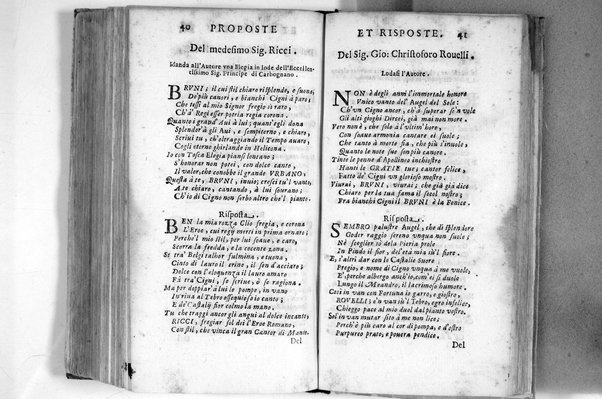 40 PROPOSTE
Del medesimo Sig. Ricci.
Manda all'Autore vna Elegia in lode dell'Eccellen-
tissimo Sig. Principe di Carbognano.
BRVNI; il cui stil chiaro risplende, e suona,
De'più canori, e bianchi Cigni à paro;
Che test al mio Signor fregio si raro,
Ch'à Regi esser potria regia corona.
Quanto i grand'Aui à lui; quant'egli dona
Splendor à gli Aui, e sempiterno, e chiaro,
Scriui tu, ch'oltraggiando il Tempo auaro,
Cogli eterne ghirlande in Helicona.
Io con Tosca Elegia piansi lontano;
S'honorar non potei, con dolce canto,
Il valer, che conobbe il grande VRBANO;
Questa à te, BRVNI, inuio; cresci tu'l vanto,
A te chiaro, cantando, à lui sourano;
Ch'io di Cigno non serbo altro che'l pianto.
Risposta.
BEN la mia rozza Clio fregia, e corona
L'Eroe, cui regij merti in prima ornaro;
Perche'l mio stil, per lui soaue, e caro,
Scorra la fredda, e la rouente zona.
Se tra' Belgi talhor fulmina, e tuona,
Cinto di lauro il crine, il sen d'acciaro;
Dolce con l'eloquenza il lauro amaro
Fà tra' Cigni, se scriue, ò se ragiona.
Ma per doppiar a lui le pompe, in vano
In riua al Tebro ossequioso io canto;
E de'Castalij fior colmo la mano.
Tu che trappi ancor gli angui al dolce incanto,
RICCI, fregiar sol dei l'Eroe Romano,
Con stil, che vinca il gran Cantor di Manto.
Del
ET RISPOSTE. 41
Del Sig. Gio: Christoforo Rouelli.
Lodasi l'Autore.
NON à degli anni l'immortale honore
Vnico vanto del'Augel del Sole:
Ch'vn Cigno ancor, ch'à superar s'en vole
Gli alti gioghi Dircei, già mai non more.
Vero non è, che solo à l'vltim'hore,
Con soaue armonia cantare ei suole;
Che tanto à morte fia, che più s'inuole;
Quanto le note sue son più canore.
Tinte le penne d'Apollineo inchiostro
Hanti le GRATIE tue; cantor felice,
Fatto de' Cigni vn glorioso mostro.
Viurai, BRVNI, viurai; che già già dice
Chiaro per la tua fama il secol nostro;
Fra bianchi Cigni il BRVNI è la Fenice.
Risposta.
SEMBRO palustre Augel, che di splendore
Goder raggio sereno vnqua non suole;
Nè sceglier sò della Pieria prole
In Pindo il fior, del'età mia sù'l fiore.
E, s'altri dar con le Castalie Suore
Pregio, e nome di Cigno vnqua à me vuole,
E', perche albergo anch'io, com'ei si duole
Lungo il Meandro, il lacrimoso humore.
Così in van con Fortuna io garro, e giostro,
ROVELLI; e'n van iu'l Tebro, egro infelice,
Chieggo pace al mio duol dal pianto vostro.
Sol in van mutar sito à me non lice;
Perch'è più caro al cor di pompa, e d'ostro
Purpureo prato, e pouera pendice.
Del